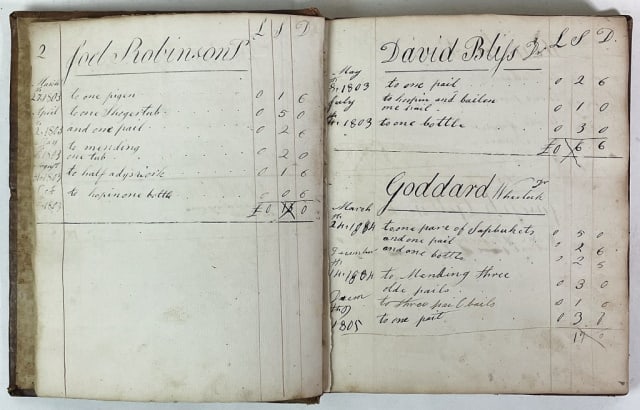 2
Joel Robinson Dr L S D
March
27 1803 to one pigen 0 1 6
April to one Shugertub 0 5 0
1803 and one pail 0 2 6
to mending
1803 one tub 0 2 0
to half adys woik 0 1 6
Oct to hopin one bottle 0 0 6
£ 0 13 0
David Bliss Dr L S D
May
1803 to one pail 0 2 6
July to hoopin and bailon
one pail 0 1 0
1803 to one bottle 0 3 0
£0 6 6
Goddard Wheelock Dr
March
24th 1804 to one pare of Sapbukits 0 5 0
and one pail 2 6
and one bottle 2 5
14th 1804 to Mending three
olde pails 0 3 0
to three pail bails 0 1 0
1805 to one pail 0 3
17 0